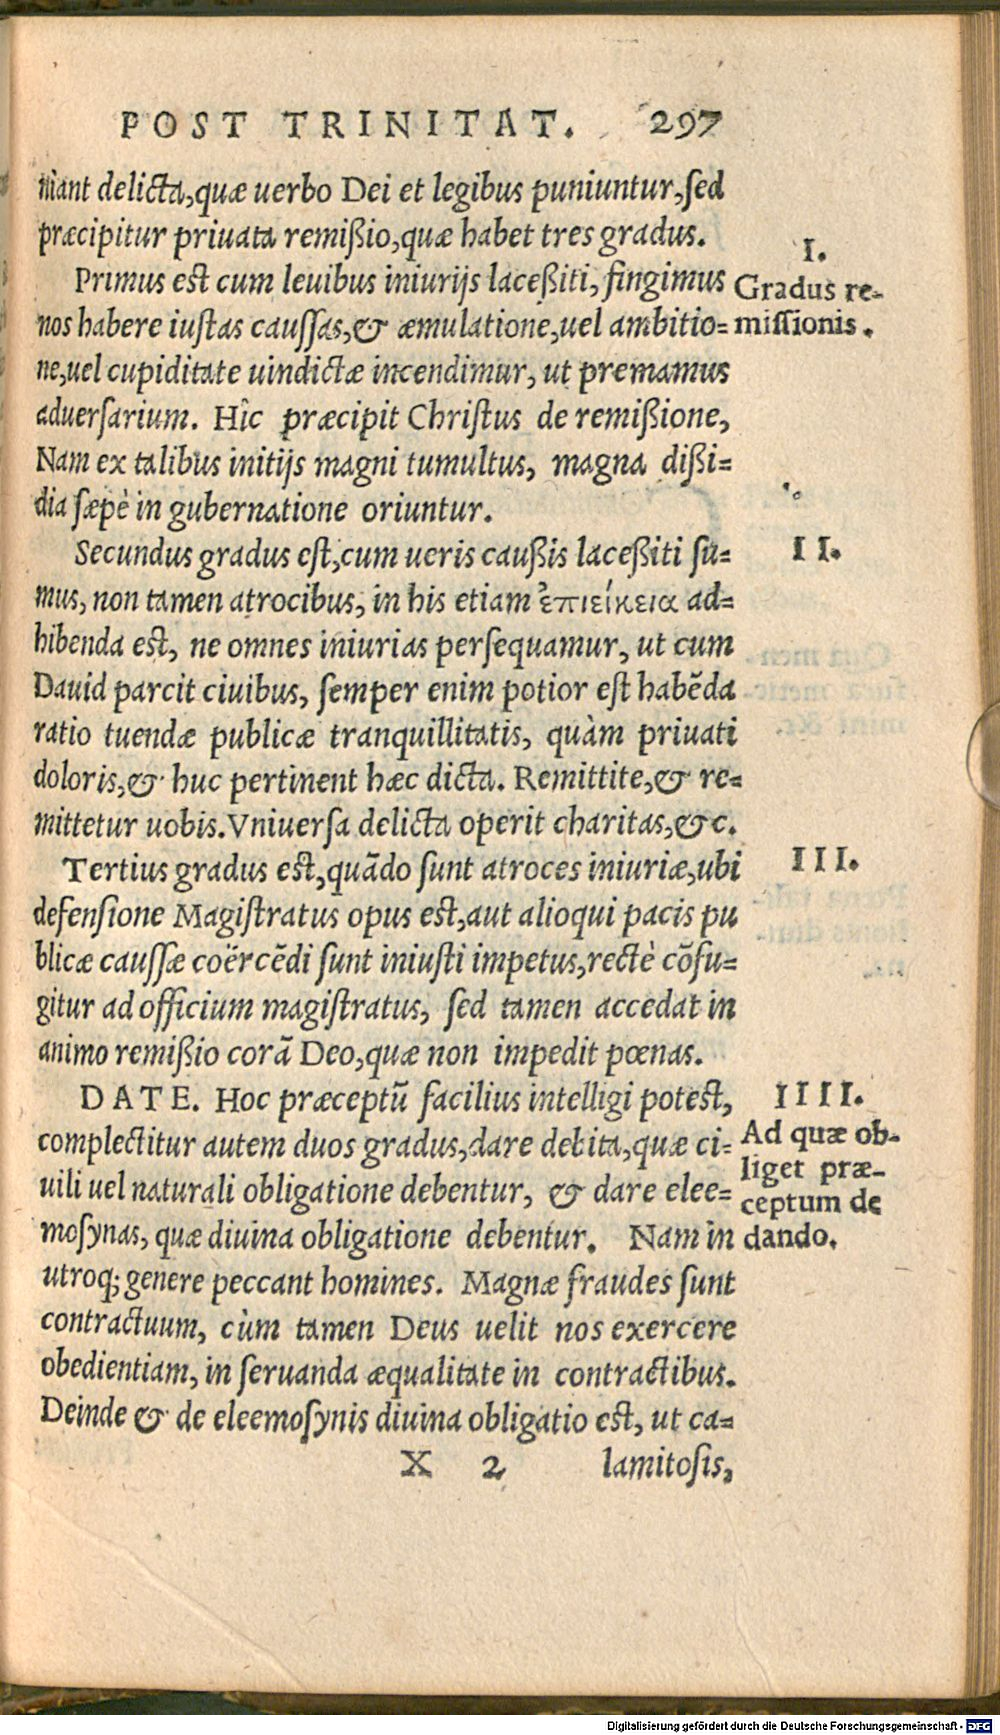 POST TRINITAT. 297
niant delicta, quæ uerbo Dei et legibus puniuntur, sed
præcipitur priuata remißio, quæ habet tres gradus.
I.
Primus est cum leuibus iniurijs laceßiti, fingimus
Gradus re-
nos habere iustas caussas, & æmulatione, uel ambitio=
missionis.
ne, uel cupiditate uindictæ incendimur, ut premamus
aduersarium. Hîc præcipit Christus de remißione,
Nam ex talibus initijs magni tumultus, magna dißi=
dia sæpè in gubernatione oriuntur.
Secundus gradus est, cum ueris caußis laceßiti su=
II.
mus, non tamen atrocibus, in his etiam ἐπιείκεια ad=
hibenda est, ne omnes iniurias persequamur, ut cum
Dauid parcit ciuibus, semper enim potior est habẽda
ratio tuendæ publicæ tranquillitatis, quàm priuati
doloris, & huc pertinent hæc dicta. Remittite, & re=
mittetur uobis. Vniuersa delicta operit charitas, &c.
Tertius gradus est, quãdo sunt atroces iniuriæ, ubi
III.
defensione Magistratus opus est, aut alioqui pacis pu
blicæ caussæ coërcẽdi sunt iniusti impetus, rectè cõfu=
gitur ad officium magistratus, sed tamen accedat in
animo remißio corã Deo, quæ non impedit pœnas.
DATE. Hoc præceptũ facilius intelligi potest,
IIII.
complectitur autem duos gradus, dare debita, quæ ci=
Ad quæ ob-
uili uel naturali obligatione debentur, & dare elee=
liget præ-
ceptum de
mosynas, quæ diuina obligatione debentur. Nam in
dando.
utroq; genere peccant homines. Magnæ fraudes sunt
contractuum, cùm tamen Deus uelit nos exercere
obedientiam, in seruanda æqualitate in contractibus.
Deinde & de eleemosynis diuina obligatio est, ut ca=
X 2 lamitosis,
Digitalisierung gefördert durch die Deutsche Forschungsgemeinschaft - DFG